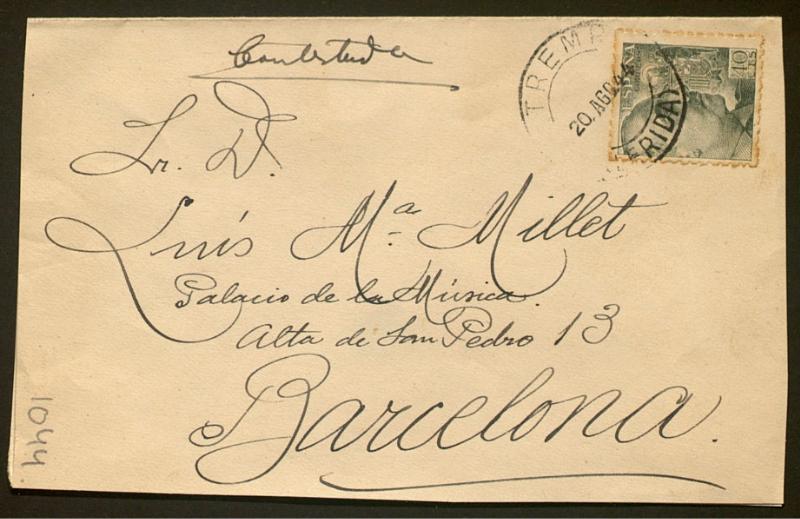 Contestada
TREMP
20.AGO.44
(LERIDA)
ESPAÑA
40 CTS
Sr. D.
Luís Mª Millet
Palacio de la Música.
Alta de San Pedro 13
Barcelona.
1044